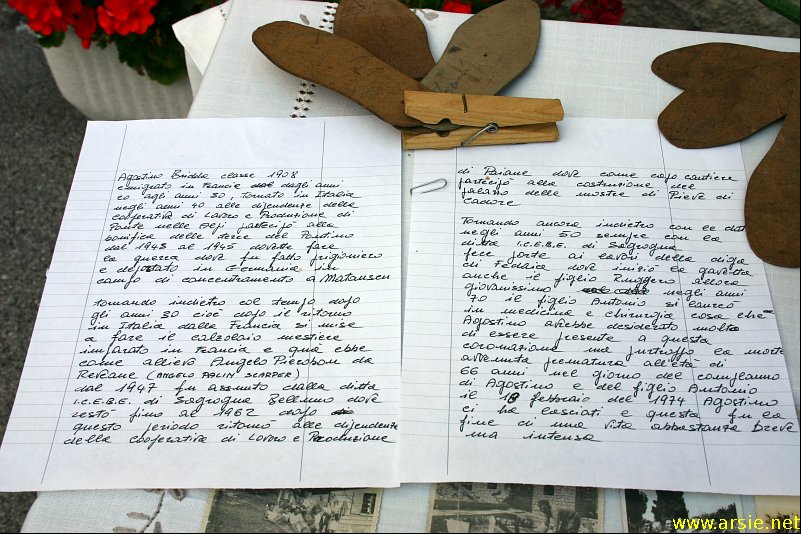 Agostino Bridda classe 1908
emigrato in Francia dagli anni
20 agli anni 30, tornato in Italia
negli anni 40 alle dipendenze della
cooperativa di Lavoro e Produzione di
Ponte nelle Alpi partecipò alla
bonifica delle terre del Pontino
dal 1943 al 1945 dovette fare
la guerra dove fu fatto prigioniero
e deportato in Germania in
campo di concentramento a
tornando indietro col tempo dopo
gli anni 30 cioè dopo il ritorno
in Italia dalla Francia si mise
a fare il calzolaio mestiere
imparato in Francia e qua ebbe
come allievo Angelo Pierobon da
Reveane (ANGELO PALIN SCARPER)
dal 1947 fu assunto dalla ditta
I.C.E.B.E. di Sagrogna Belluno dove
restò fino al 1962 dopo
questo periodo ritornò alle dipendenze
della cooperativa di Lavoro e Produzione
di Paiane dove come capo cantiere
partecipò alla costruzione del
palazzo delle mostre di Pieve di
Cadore
Tornando ancora indietro con le date
negli anni 50 sempre con la
ditta I.C.E.B.E. di Sagrogna
fece parte ai lavori della diga
di Fedaia dove iniziò la gavetta
anche il figlio Ruggero allora
giovanissimo negli anni
70 il figlio Antonio si laureò
in medicina e chirurgia cosa che
Agostino avrebbe desiderato molto
di essere presente a questa
coronazione ma purtroppo la morte
avvenuta prematura all'età di
66 anni nel giorno del compleanno
di Agostino e del figlio Antonio
il 18 febbraio del 1974 Agostino
ci ha lasciati e questa fu la
fine di una vita abbastanza breve
ma intensa
www.arsie.net